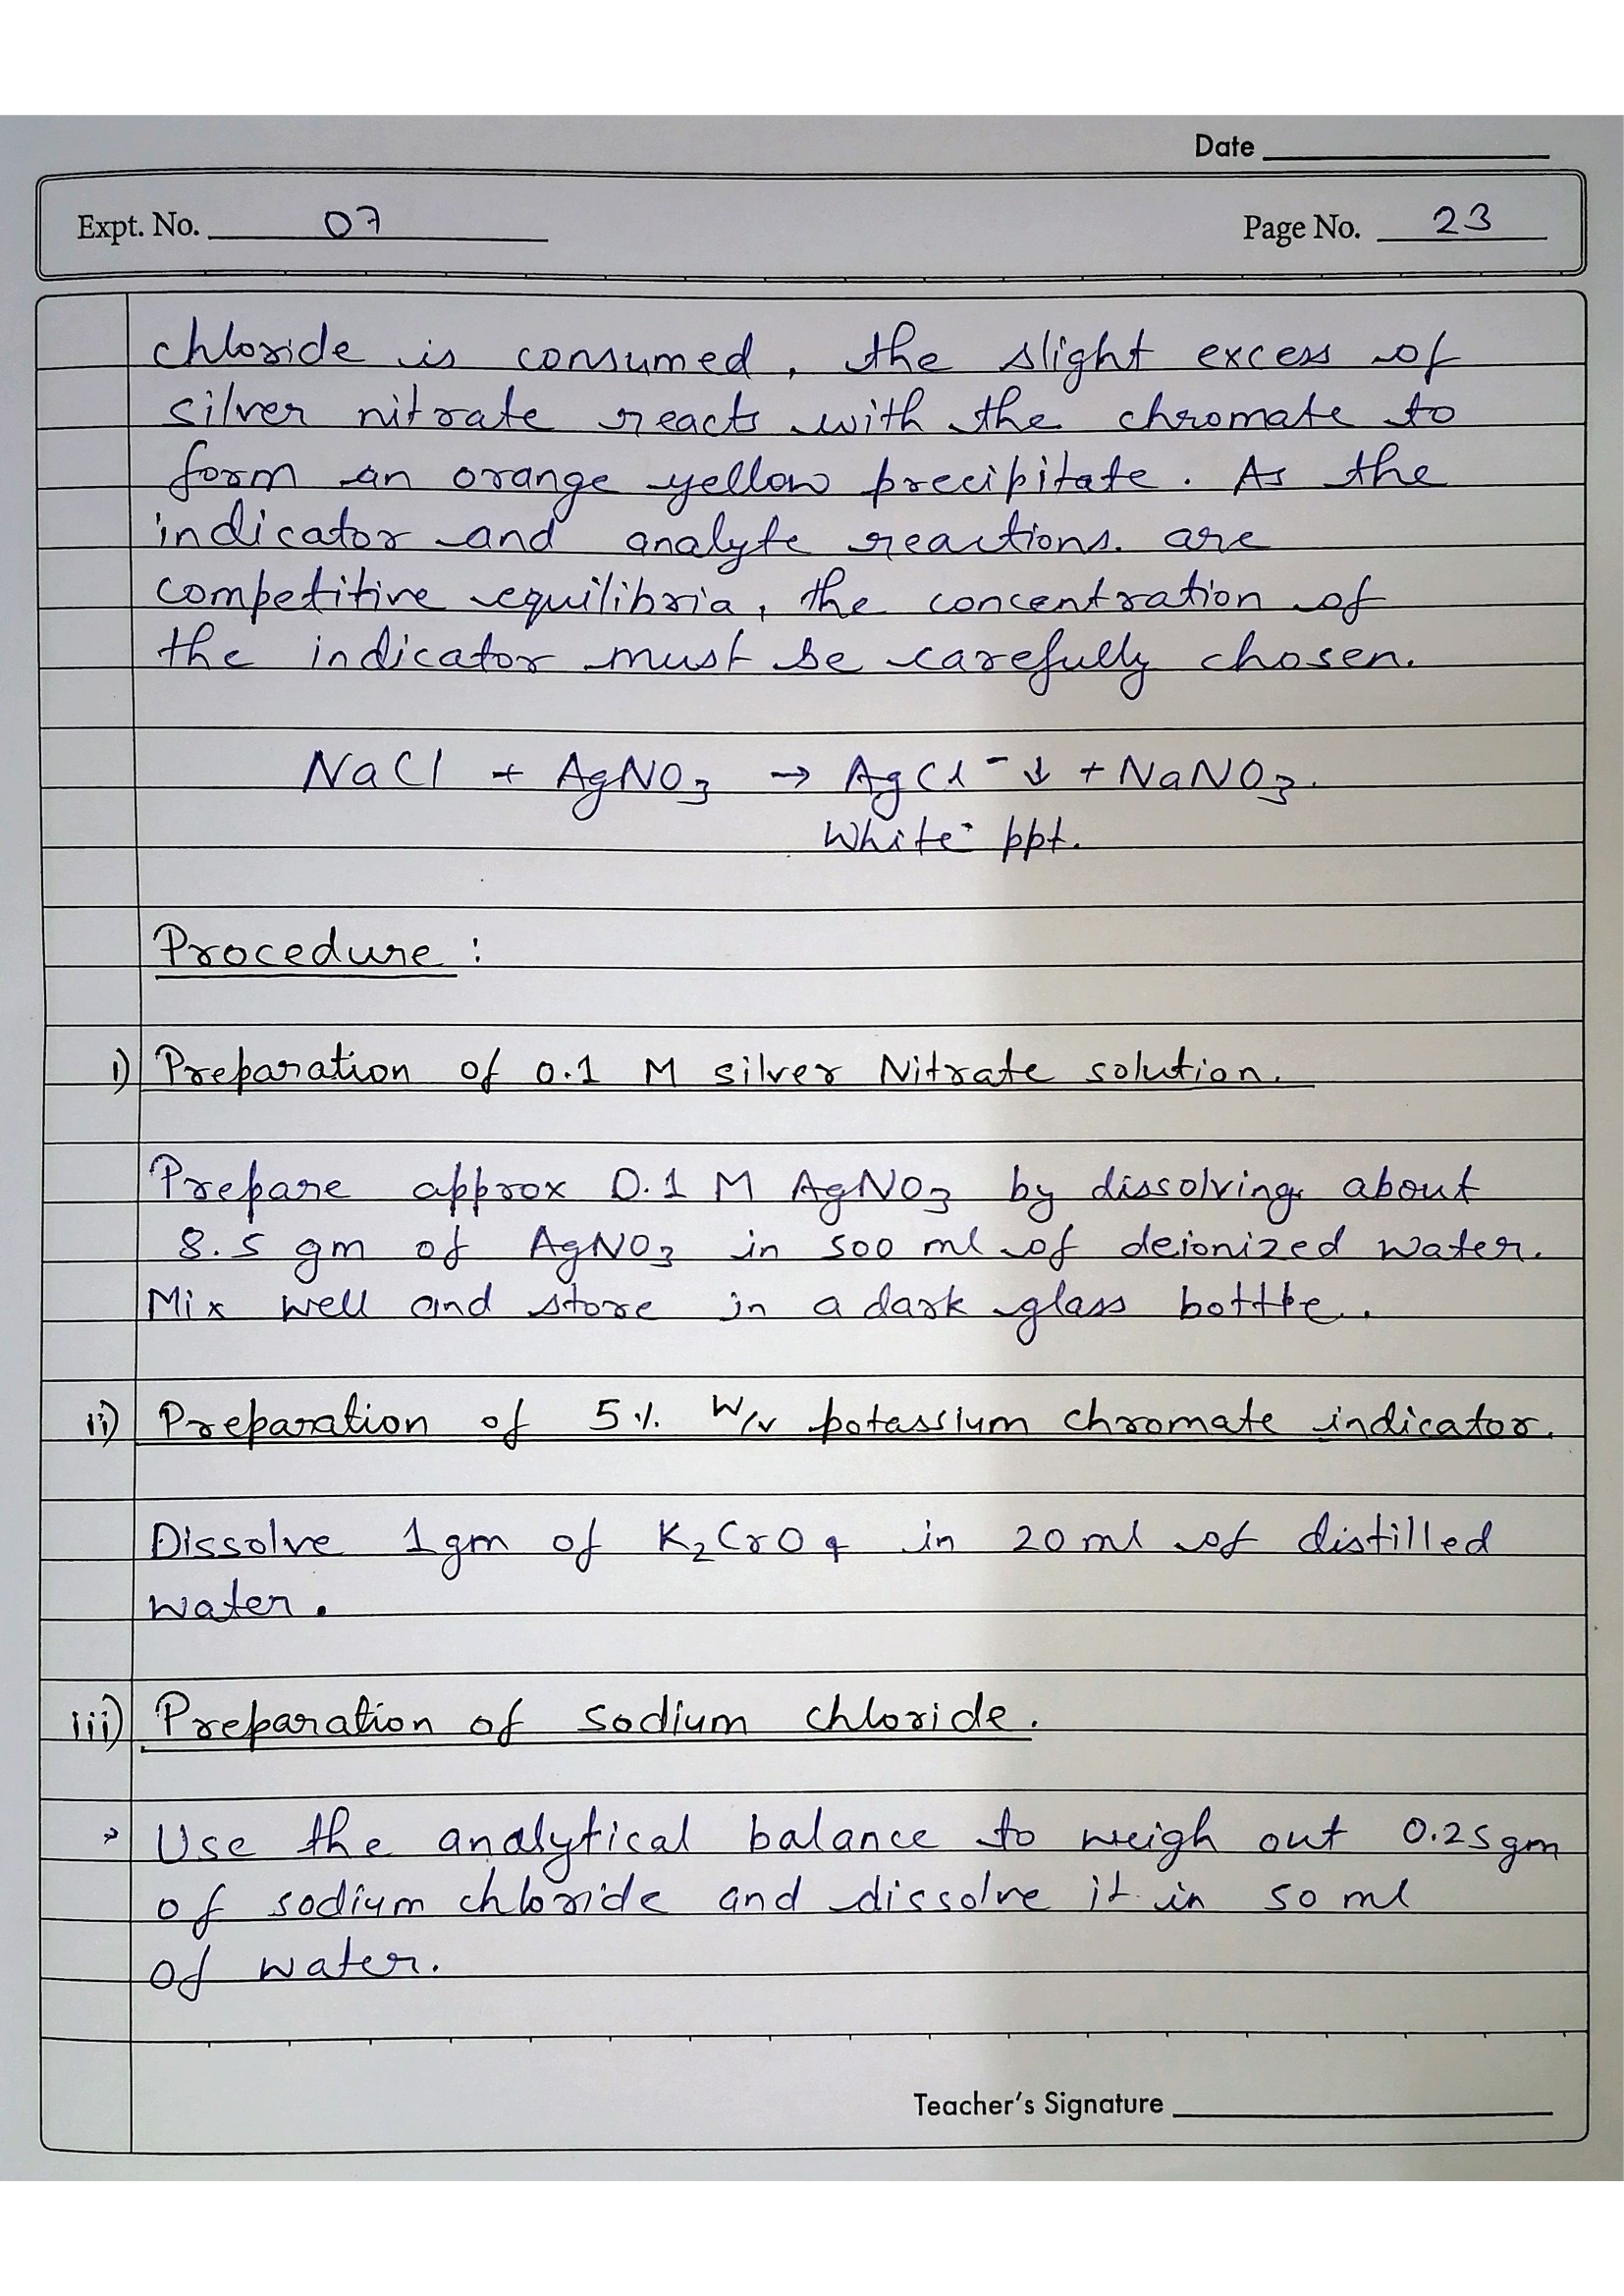 Date
Expt. No. 07 Page No. 23
chloride is consumed, the slight excess of
silver nitrate reacts with the chromate to
form an orange yellow precipitate. As the
indicator and analyte reactions. are
competitive equilibria, the concentration of
the indicator must be carefully chosen.
NaCl + AgNO₃ → AgCl⁻ ↓ + NaNO₃.
White ppt.
Procedure :
i) Preparation of 0.1 M silver Nitrate solution.
Prepare approx 0.1 M AgNO₃ by dissolving about
8.5 gm of AgNO₃ in 500 ml of deionized water.
Mix well and store in a dark glass bottle.
ii) Preparation of 5% W/v potassium chromate indicator.
Dissolve 1gm of K₂CrO₄ in 20 ml of distilled
water.
iii) Preparation of sodium chloride.
> Use the analytical balance to weigh out 0.25gm
of sodium chloride and dissolve it in 50 ml
of water.
Teacher's Signature